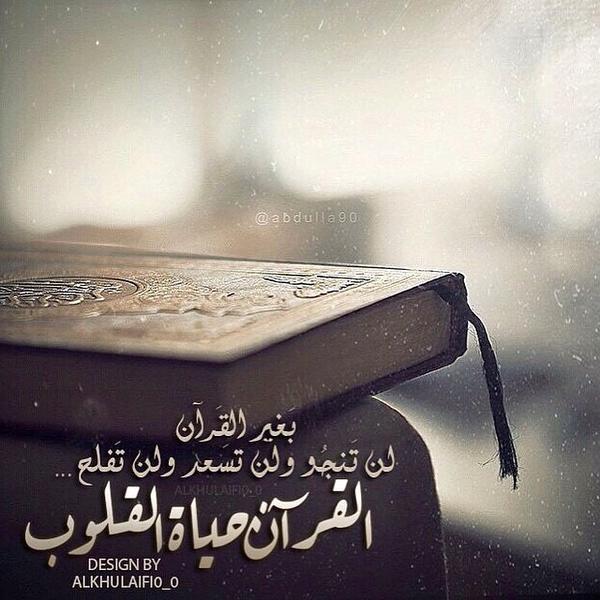 @abdulla90
بَغير القَرآن
لن تَنجُو ولن تسَعد ولن تَفلح ...
ALKHULAIFI0_0
القرآن حياة القلوب
DESIGN BY
ALKHULAIFI0_0